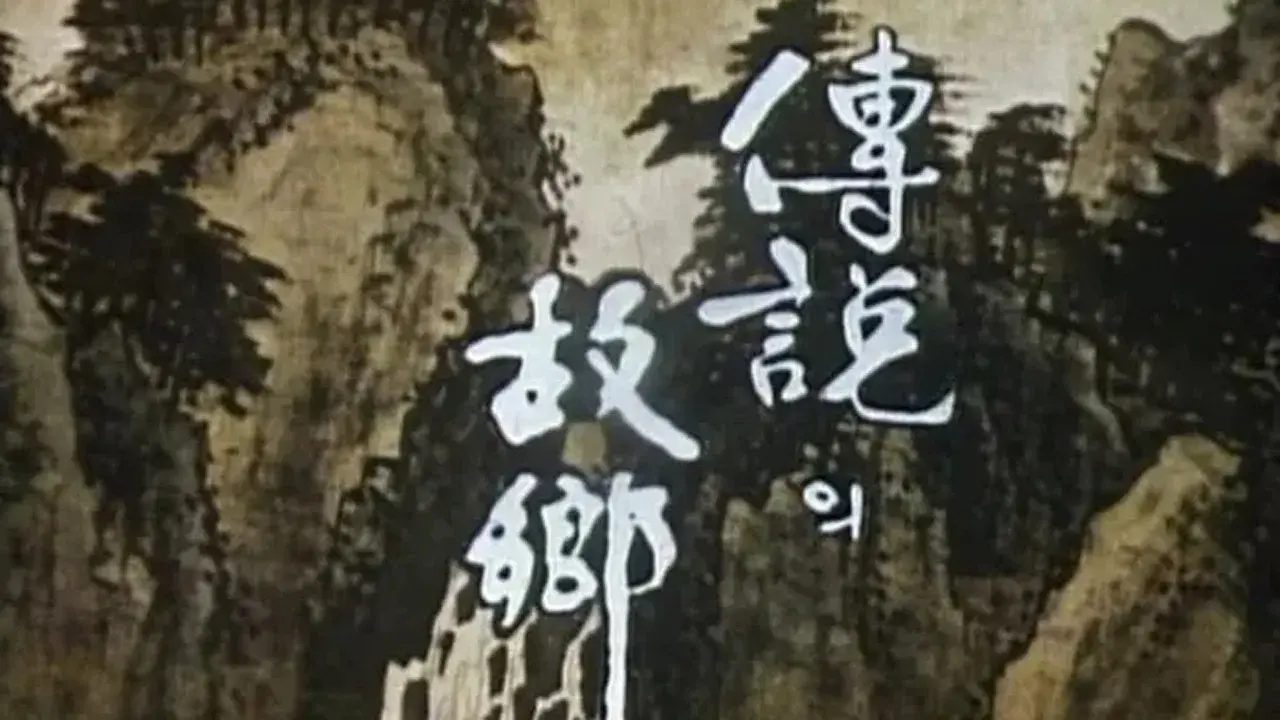 傳說의
故鄕